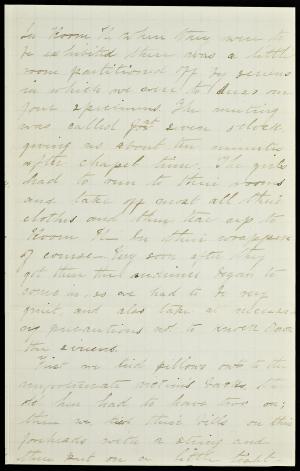 In Room K where they were to
be exhibited there was a little
room partitioned off by screens
in which we were to dress on
four specimens. The meeting
was called for at seven o'clock,
giving us about ten minutes
after chapel time. The girls
had to run to their rooms
and take off most all their
clothes and then tear up to
Room K— in their wrappers
of course. Very soon after they
got there the audience began to
come in, so we had to be very
quiet, and also take
precautions not to knock down
the screens.
First we tied pillows on to the
unfortunate victims backs, the
had to have two on;
then we tied their bibs on their
foreheads with a string and
then put on a little tight